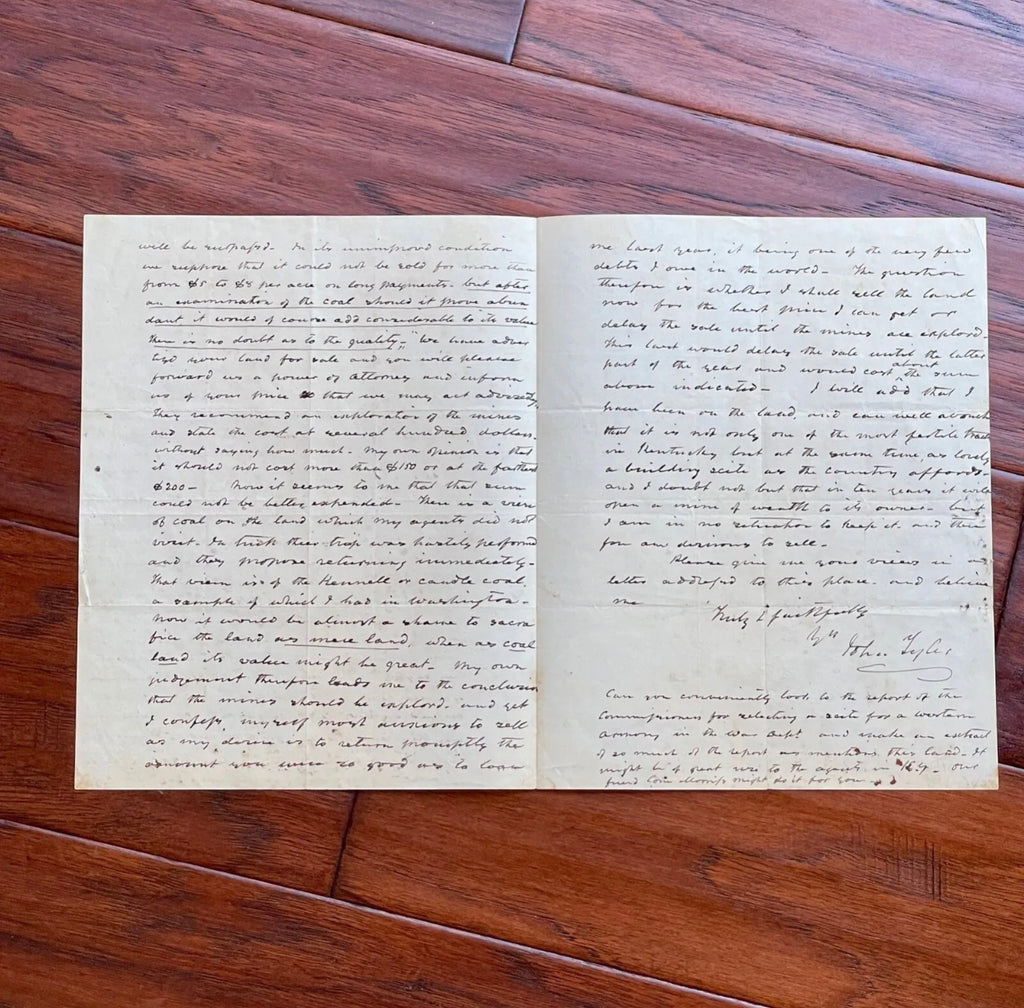 will be surpassed. In its unimproved condition
we suppose that it could not be sold for more than
from $5 to $8 per acre on long payments. but after
an examination of the coal should it prove abun
dant it would of course add considerable to its value
there is no doubt as to the quality." We have adver
tised your land for sale and you will please
forward us a power of Attorney and inform
us of your price that we may act advisedly
They recommend an exploration of the mines
and state the cost at several hundred dollars.
without saying how much. My own opinion is that
it should not cost more than $150 or at the farthest
$200 - Now it seems to me that that sum
could not be better expended. There is a view
of coal on the land which my agents did not
visit. In truth their trip was hastily performd
and they propose returning immediately.
That view is of the Kennell or candle coal,
a sample of which I had in Washington.
Now it would be almost a shame to sacra
fice the land as mere land, when as coal
land its value might be great. My own
judgement therefore leads me to the conclusion
that the mines should be explord. and yet
I confess, myself most anxious to sell
as my desire is to return promptly the
amount you were so good as to loan
me last year, it being one of the very few
debts I owe in the world - The question
therefore is whether I shall sell the land
now for the best price I can get or
delay the sale until the mines are explord.
This last would delay the sale until the latter
part of the year and would cost about the sum
above indicated - I will add that I
have been on the land, and can well avouch
that it is not only one of the most fertile tracts
in Kentucky but at the same time, as lovely
a building scite as the country affords -
and I doubt not but that in ten years it will
open a mine of wealth to its owner - but
I am in no situation to keep it. and there
for am anxious to sell -
Please give me your views in a
letter addressd to this place. and believe
me Truly & faithfully
Yrs John Tyler
Can you conveniently look to the report of the
Commissioners for selecting a scite for a western
armory in the war Dept and make an extract
of so much of the report as mentions this land. It
might be of great use to the agents in Ky - Our
friend Com might do it for you -